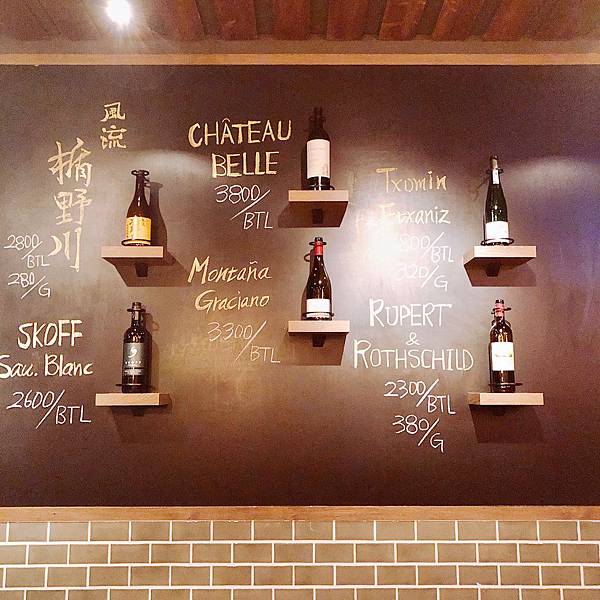 風流
楯野川
2800/BTL
280/G
CHÂTEAU
BELLE
3800/BTL
Txomin
Etxaniz
1800/BTL
320/G
Montaña
Graciano
3300/BTL
SKOFF
Sau. Blanc
2600/BTL
RUPERT
&
ROTHSCHILD
2300/BTL
380/G